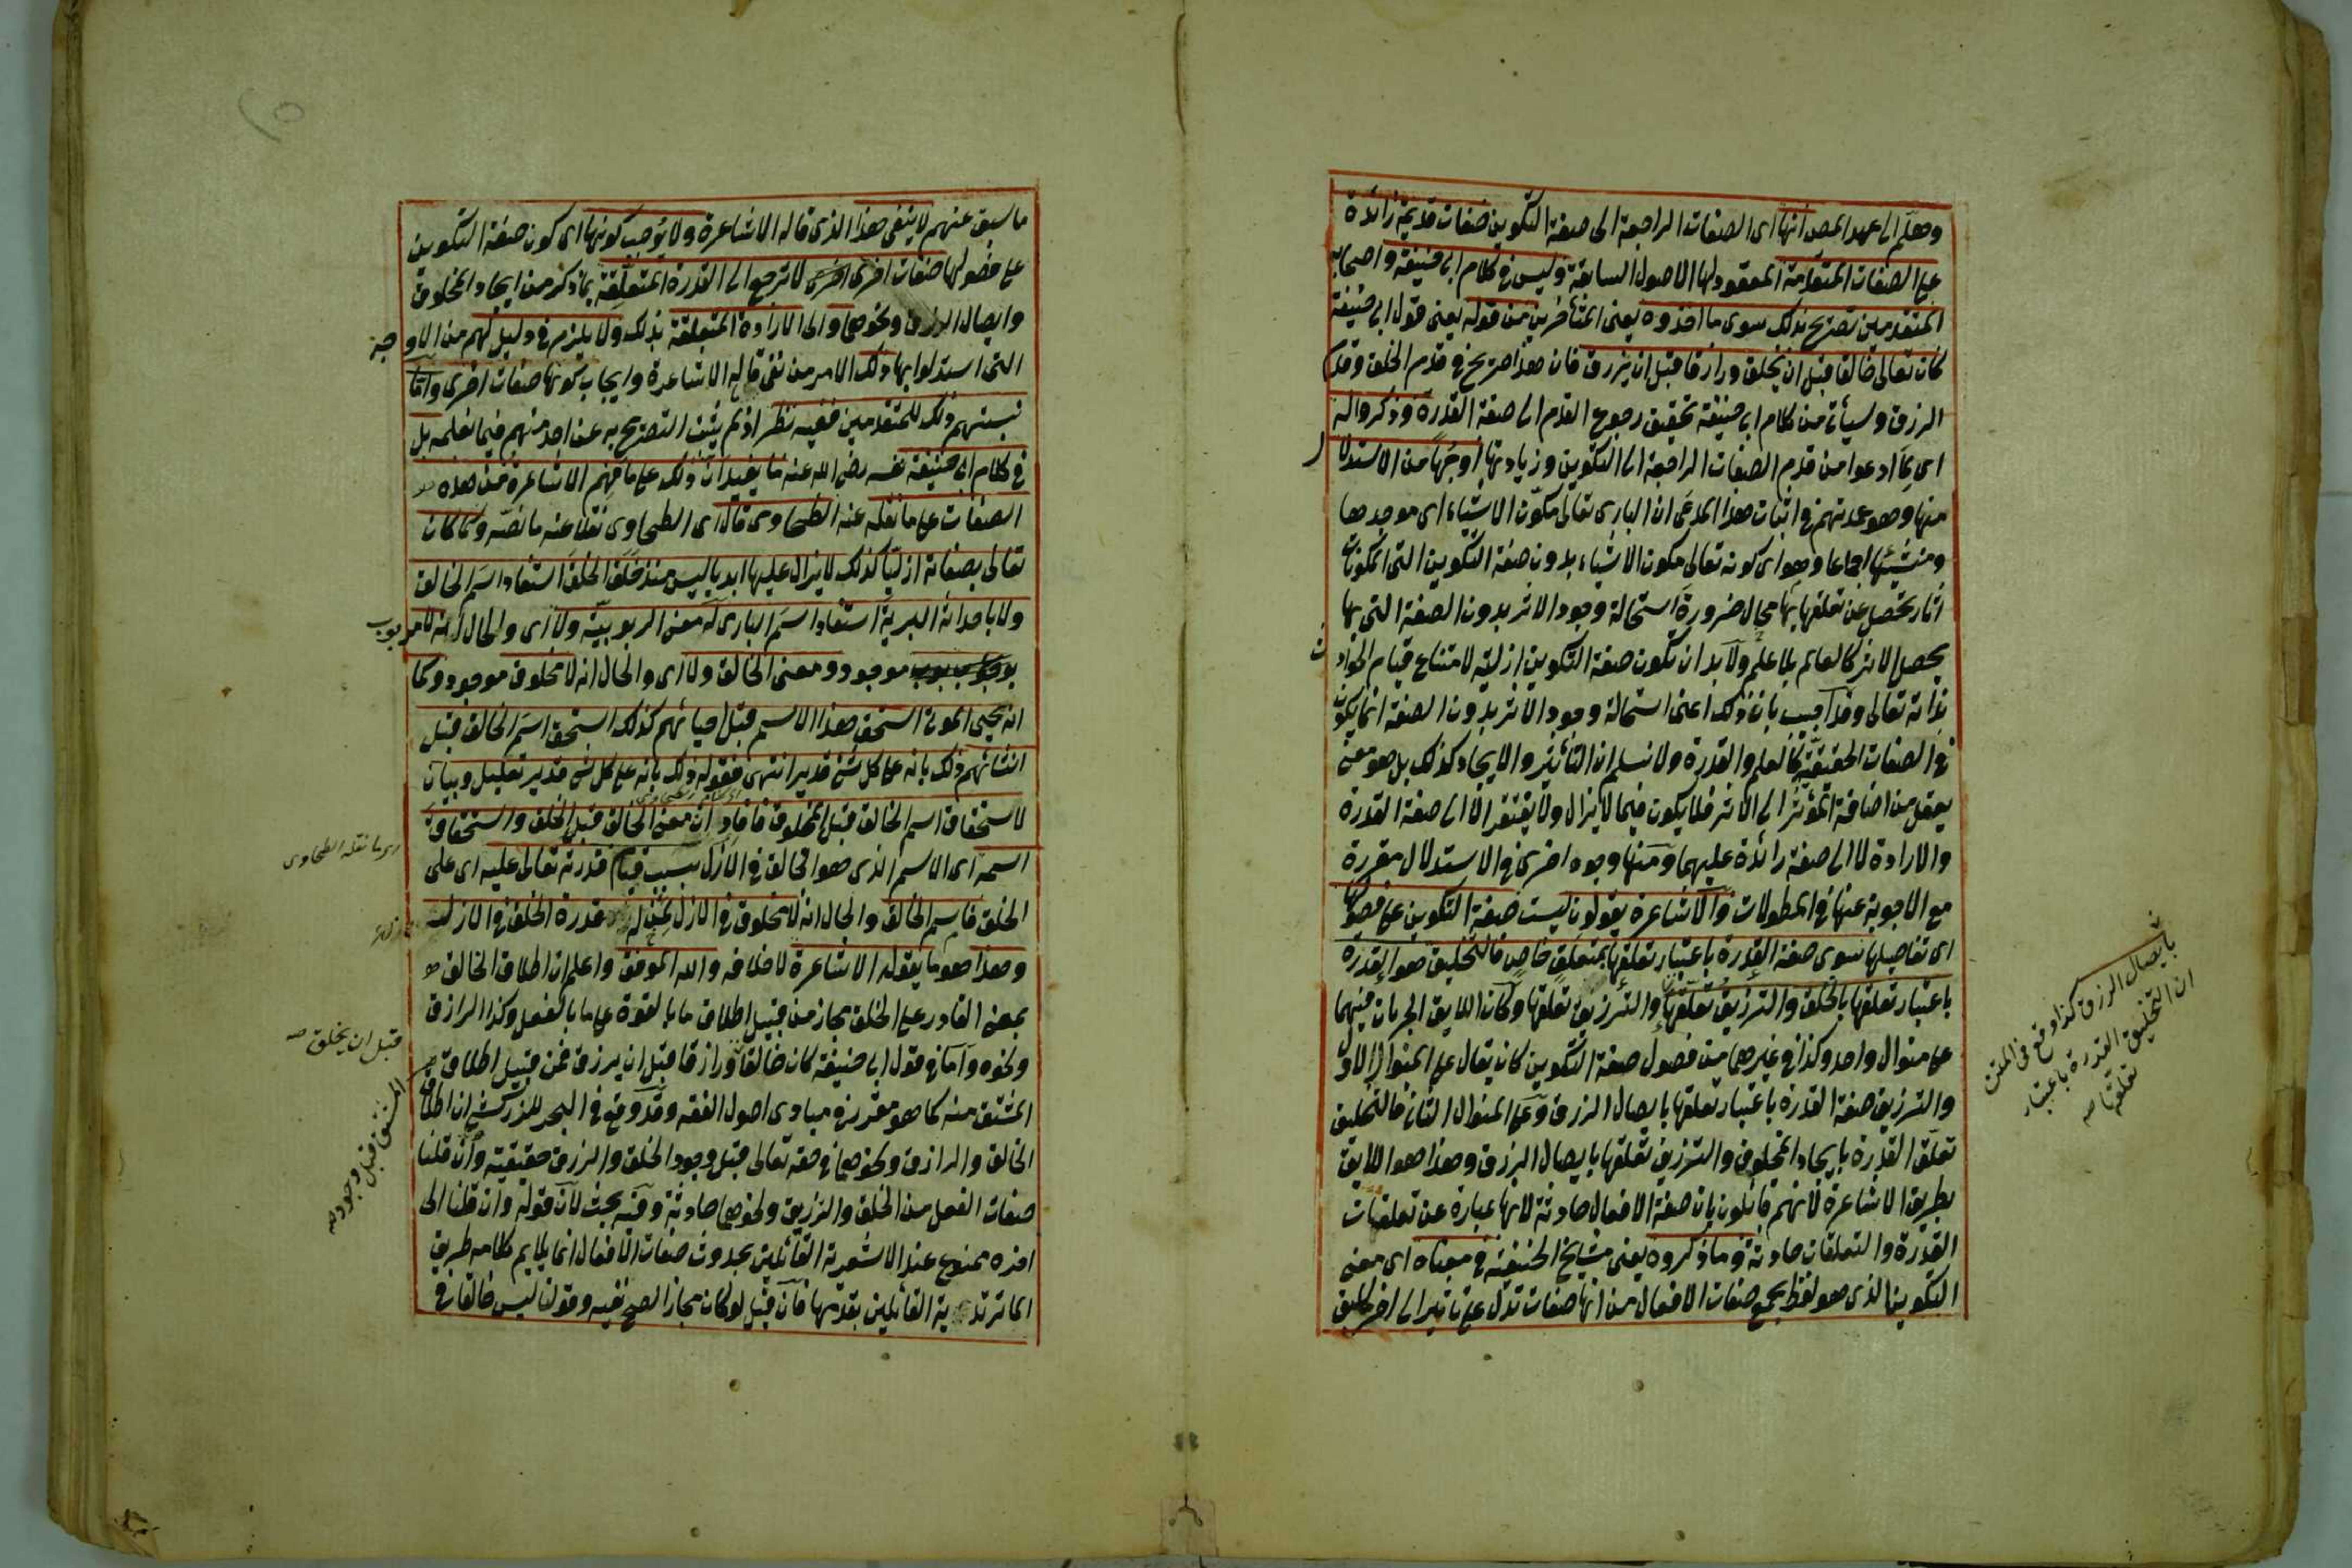 وهلم الى عهد المص انها اى الصفات الراجعة الى صفة التكوين صفات قديمة زائدة
على الصفات المتقدمة المعقود لها الاصول السابقة وليس فى كلام ابى حنيفة واصحابه
المتقدمين تصريح بذلك سوى ما اخذوه يعنى المتأخرين من قوله يعنى قول ابى حنيفة
كان تعالى خالقا قبل ان يخلق ورازقا قبل ان يرزق فان هذا صريح فى قدم الخلق وقدم
الرزق وسيأتى من كلام ابى حنيفة تحقيق رجوع القدم الى صفة القدرة وذكروا له
اى لما ادعوا من قدم الصفات الراجعة الى التكوين وزيادتها أوجها من الاستدلال
منها وهو عمدتهم فى اثبات هذا المدعى ان البارى تعالى مكون الاشياء اى موجدها
ومنشئها اجماعا وهو اى كونه تعالى مكون الاشياء بدون صفة التكوين التى المكونات
آثار تحصل عن تعلقها بها محال ضرورة استحالة وجود الاثر بدون الصفة التى بها
يحصل الاثر كالعالم بلا علم ولا بد ان تكون صفة التكوين ازلية لامتناع قيام الحوادث
بذاته تعالى وقد اجيب بان ذلك اعنى استحالة وجود الاثر بدون الصفة انما يكون
فى الصفات الحقيقية كالعلم والقدرة ولا نسلم ان التأثير والايجاد كذلك بل هو معنى
يعقل من اضافة المؤثر الى الاثر فلا يكون فيما لا يزال ولا يفتقر الا الى صفة القدرة
والارادة لا الى صفة زائدة عليهما ومنها وجوه اخرى فى الاستدلال مقررة
مع الاجوبة عنها فى المطولات والاشاعرة يقولون ليست صفة التكوين على فصولها
اى تفاصيلها سوى صفة القدرة باعتبار تعلقها بمتعلق خاص فالتخليق هو القدرة
باعتبار تعلقها بالخلق والترزيق تعلقها والترزيق تعلقها وكان اللايق الجريان فيهما
على منوال واحد وكذا فى غيرهما من فصول صفة التكوين كان يقال على المنوال الاول
والترزيق صفة القدرة باعتبار تعلقها بايصال الرزق وعلى المنوال الثانى فالتخليق
تعلق القدرة بايجاد المخلوق والترزيق تعلقها بايصال الرزق وهذا هو اللايق
بطريق الاشاعرة لانهم قائلون بان صفة الافعال حادثة لانها عبارة عن تعلقات
القدرة والتعلقات حادثة وما ذكروه يعنى مشايخ الحنفية فى معناه اى معنى
التكوين الذى هو لفظ يجمع صفات الافعال من انها صفات تدل على تأثير الى اخر
بايصال الرزق كذا وقع فى المتن
ان التخليق القدرة باعتبار
تعلقها صه
ما سبق عنهم لا ينفى هذا الذى قاله الاشاعرة ولا يوجب كونها اى كون صفة التكوين
على فصولها صفات اخرى لا ترجع الى القدرة المتعلقة بما ذكر من ايجاد المخلوق
وايصال الرزق ونحوهما والى الارادة المتعلقة بذلك ولا يلزم فى دليل لهم من الاوجه
التى استدلوا بها ذلك الامر من نفى قاله الاشاعرة وايجاب كونها صفات اخرى واما
نسبتهم ذلك للمتقدمين ففيه نظر اذ لم يثبت التصريح به عن احد منهم فيما نعلمه بل
فى كلام ابى حنيفة نفسه رضى الله عنه ما يفيد ان ذلك على ما فهم الاشاعرة من هذه
الصفات على ما نقله عنه الطحاوى قال اى الطحاوى نقلا عنه ما نصه وكما كان
تعالى بصفاته ازليا كذلك لا يزال عليها ابديا ليس منذ خلق الخلق استفاد اسم الخالق
ولا باحداثه البرية استفاد اسم البارى له معنى الربوبية ولا اى والحال انه لا مربوب
موجود ومعنى الخالق ولا اى والحال انه لا مخلوق موجود وكما
انه يحيى الموتى استحق هذا الاسم قبل احيائهم كذلك استحق اسم الخالق قبل
انشائهم ذلك بانه على كل شئ قدير انتهى فقوله ذلك بانه على كل شئ قدير تعليل وبيان
لاستحقاق اسم الخالق قبل المخلوق فافاد ان معنى الخالق قبل الخلق واستحقاق
اسمه اى الاسم الذى هو الخالق فى الازل بسبب قيام قدرته تعالى عليه اى على
الخلق فاسم الخالق والحال انه لا مخلوق فى الازل لمن له قدرة الخلق فى الازل
وهذا هو ما يقوله الاشاعرة لا خلافه والله الموفق واعلم ان اطلاق الخالق
بمعنى القادر على الخلق مجاز من قبيل اطلاق ما بالقوة على ما بالفعل وكذا الرازق
ونحوه وأما فى قول ابى حنيفة كان خالقا ورازقا قبل ان يرزق فمن قبيل اطلاق
المشتق منه كما هو مقرر فى مبادى اصول الفقه وقد وقع فى البحر للزركشى ان اطلاق
الخالق والرازق ونحوهما فى حقه تعالى قبل وجود الخلق والرزق حقيقية وان قلنا
صفات الفعل من الخلق والرزيق ونحوهما حادثة وفيه بحث لان قوله وان قلنا الى
اخره ممنوع عند الاشعرية القائلين بحدوث صفات الافعال انما يلايم كلامه طريق
الماتريدية القائلين بقدمها فان قيل لو كان مجازا لصح نفيه وقولنا ليس خالقا فى
اى ما نقله الطحاوى
قبل ان يخلق صه
المشتق قبل وجود صه